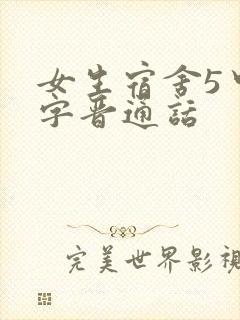 女生宿舍5中
字晋通話
完美世界影視